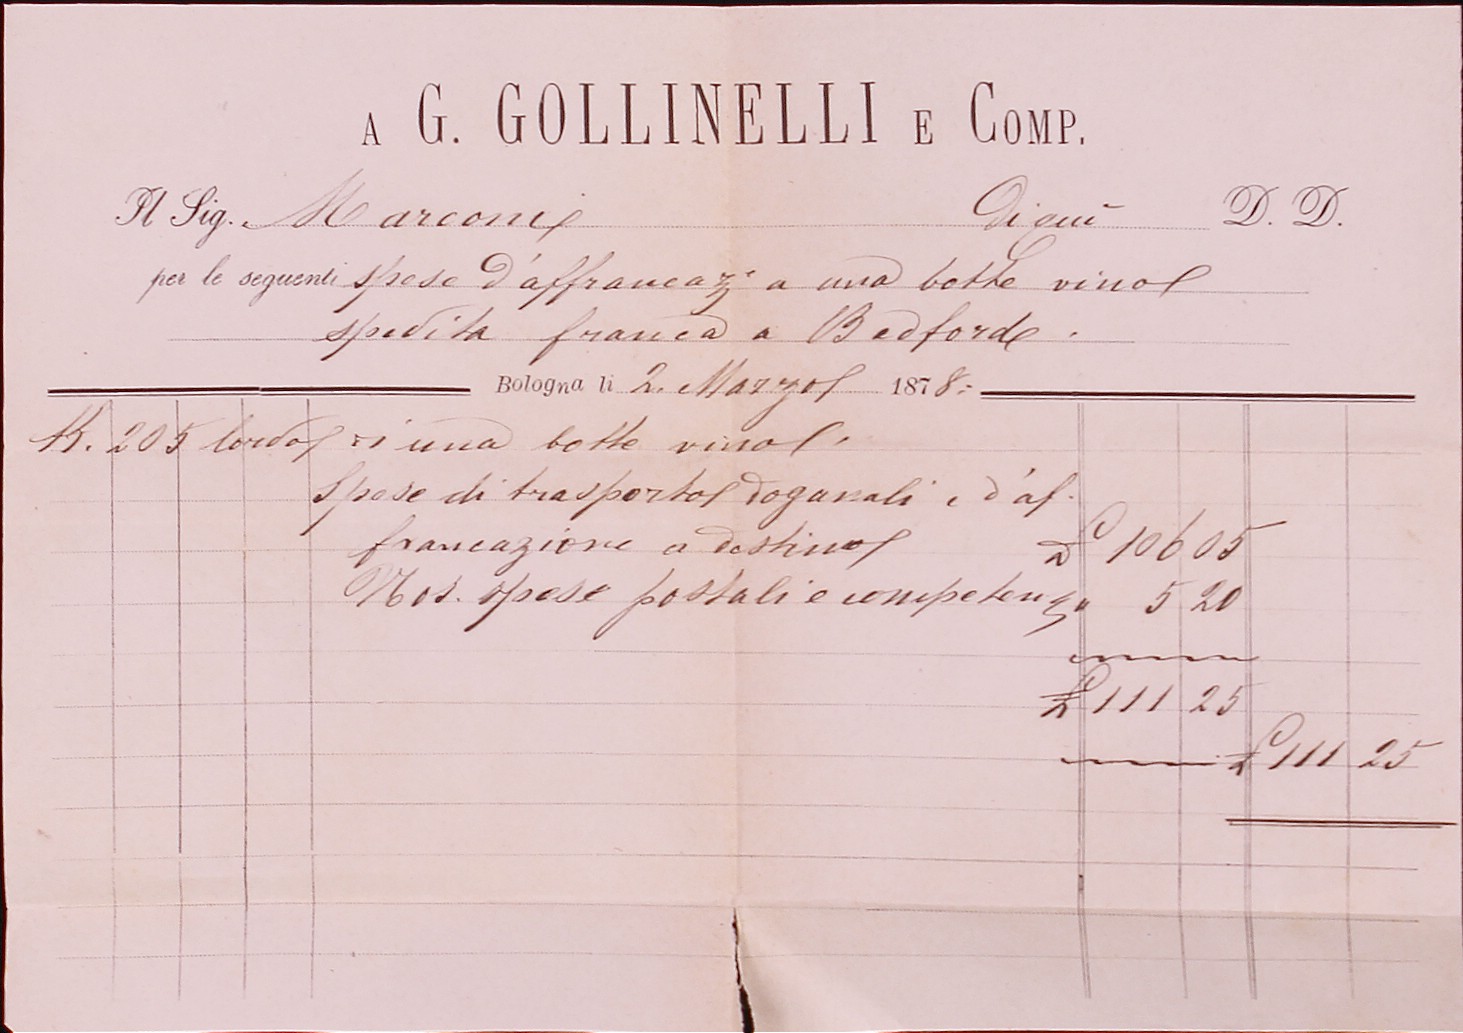 A G. GOLLINELLI E COMP.
Il Sig. Marconi Di quì D. D.
per le seguenti spese d'affrancaz.e a una botte vino
spedita franca a Bedford.
Bologna li 2. Marzo 1878.
K. 205 lordo di una botte vino.
Spese di trasporto doganali e d'af-
francazione a destino £ 106 05
Nos. spese postali e competenze " 5 20
£ 111 25
£ 111 25